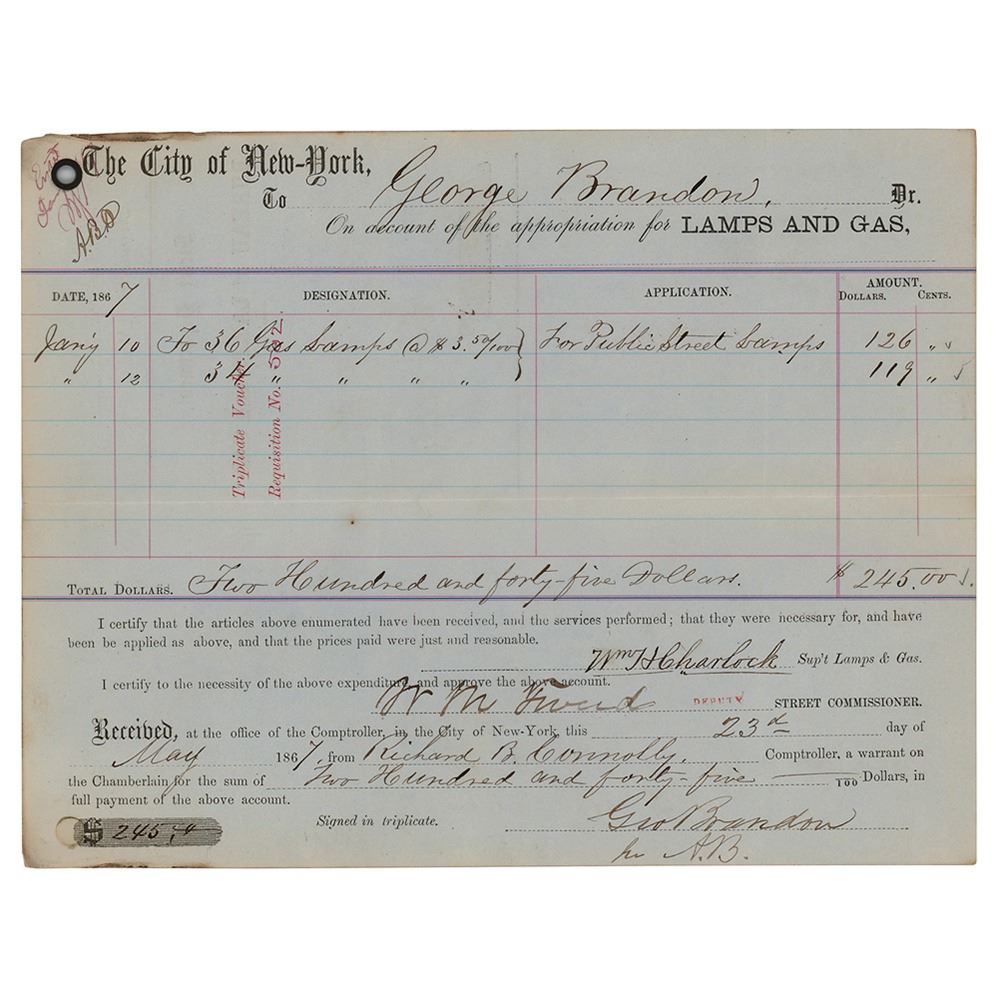 The City of New-York,
To George Brandon, Dr.
On account of the appropriation for LAMPS AND GAS,
A.B.D
DATE, 1867 DESIGNATION. APPLICATION. AMOUNT.
DOLLARS. CENTS.
Jan'y 10 To 36 Gas Lamps @ $3.50/100 For Public Street Lamps 126 "
" 12 34 " " " " 119 "
Triplicate Voucher
Requisition No. 532.
TOTAL DOLLARS. Two Hundred and forty-five Dollars. $ 245.00
I certify that the articles above enumerated have been received, and the services performed; that they were necessary for, and have
been be applied as above, and that the prices paid were just and reasonable.
Wm H Charlock Sup't Lamps & Gas.
I certify to the necessity of the above expenditure and approve the above account.
W M Tweed DEPUTY STREET COMMISSIONER.
Received, at the office of the Comptroller, in the City of New-York, this 23d day of
May 1867, from Richard B. Connolly, Comptroller, a warrant on
the Chamberlain for the sum of Two Hundred and forty-five /100 Dollars, in
full payment of the above account.
$ 245
Signed in triplicate. Geo Brandon
per A.B.